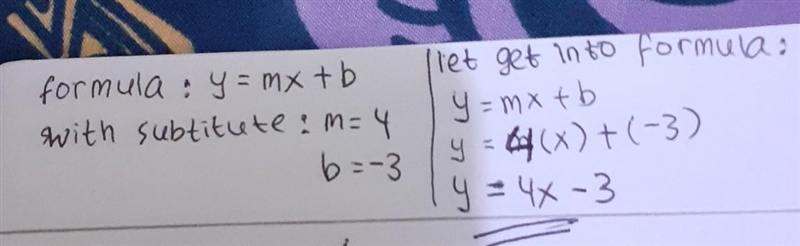 formula : y = mx + b
with subtitute : m = 4
b = -3
let get into formula :
y = mx + b
y = 4(x) + (-3)
y = 4x - 3